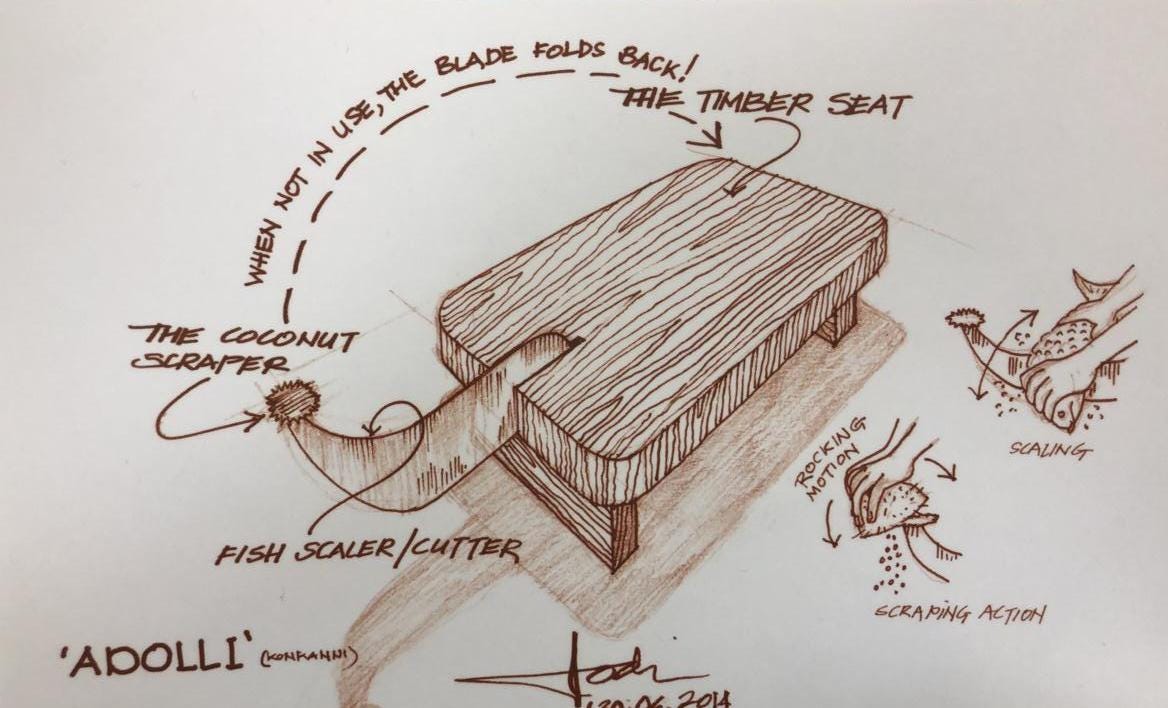 WHEN NOT IN USE, THE BLADE FOLDS BACK!
THE TIMBER SEAT
THE COCONUT
SCRAPER
FISH SCALER/CUTTER
ROCKING
MOTION
SCALING
SCRAPING ACTION
'ADOLLI' (KONKANNI)
20.06.2014